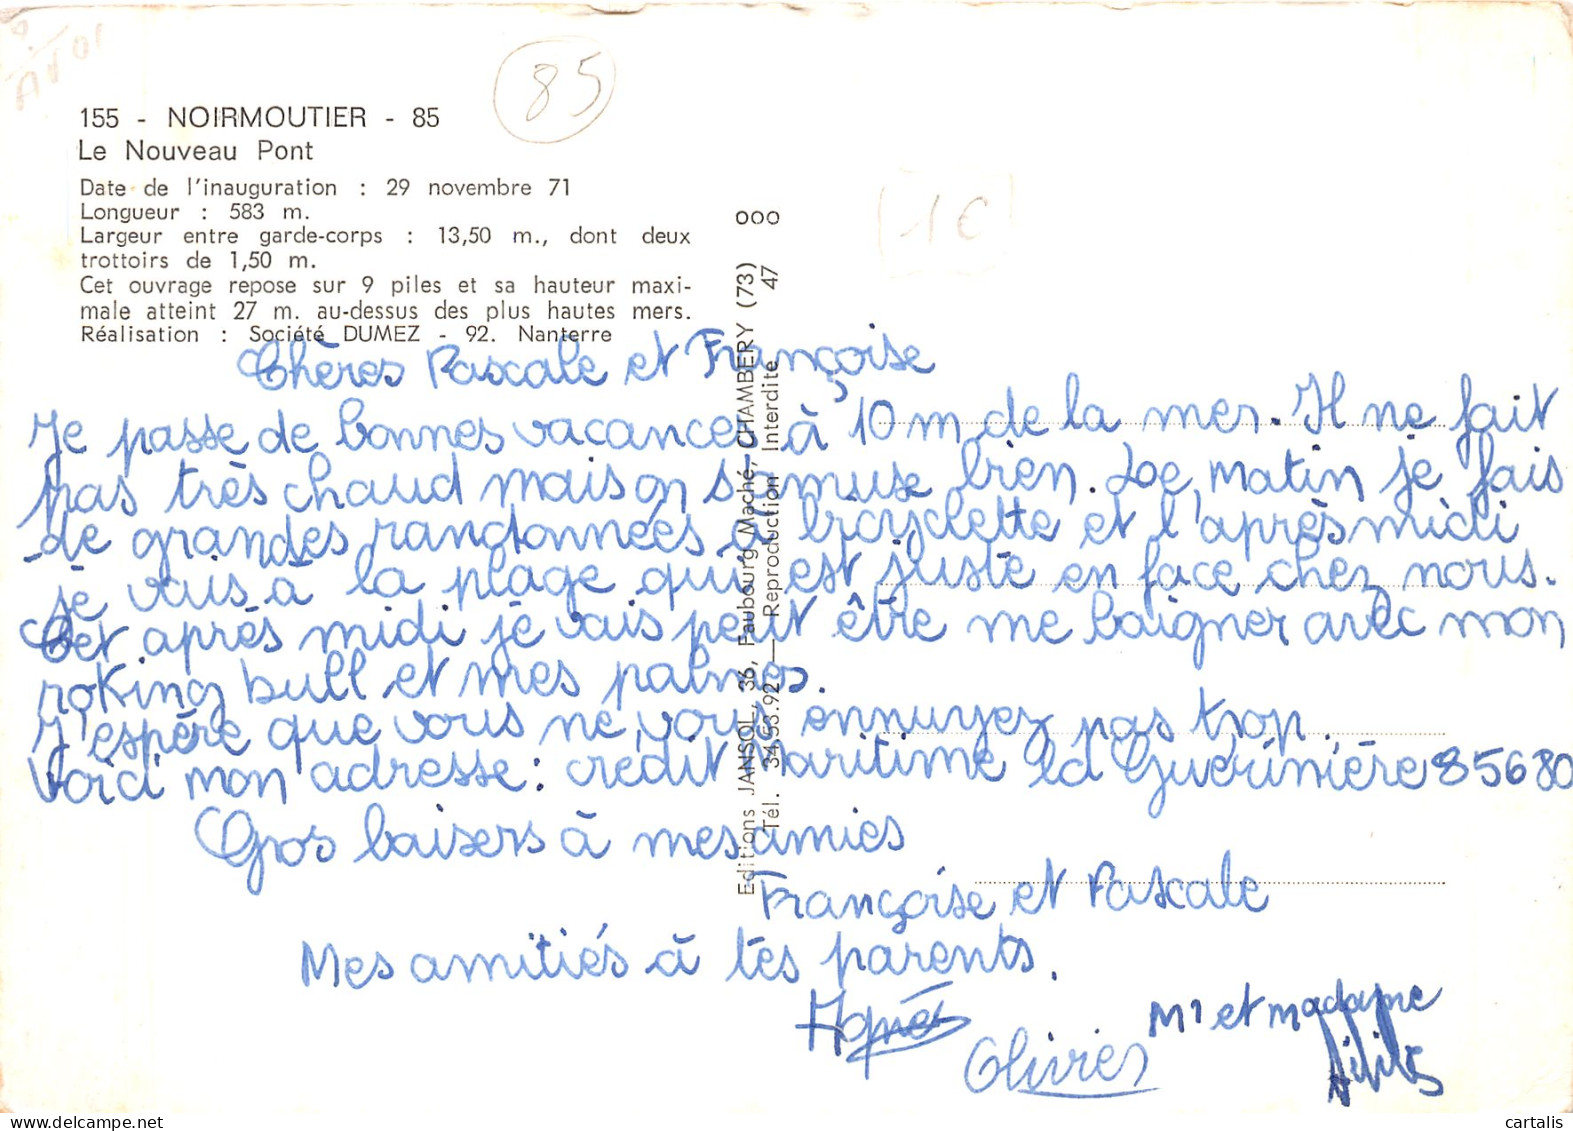 85
155 - NOIRMOUTIER - 85
Le Nouveau Pont
Date de l'inauguration : 29 novembre 71
Longueur : 583 m.
Largeur entre garde-corps : 13,50 m., dont deux
trottoirs de 1,50 m.
Cet ouvrage repose sur 9 piles et sa hauteur maxi-
male atteint 27 m. au-dessus des plus hautes mers.
Réalisation : Société DUMEZ - 92. Nanterre
1€
Editions JANSOL, 36, Faubourg Maché, CHAMBERY (73) ooo
Tél. 34.53.92 — Reproduction Interdite 47
Chères Pascale et Françoise
Je passe de bonnes vacances à 10 m de la mer. Il ne fait
pas très chaud mais on s'amuse bien. Le matin je fais
de grandes randonnées à bicyclette et l'après midi
je vais à la plage qui est juste en face chez nous.
Cet après midi je vais peut être me baigner avec mon
roking bull et mes palmes.
J'espère que vous ne vous ennuyez pas trop.
Voici mon adresse : crédit Maritime la Guérinière 85680
Gros baisers à mes amies
Françoise et Pascale
Mes amitiés à tes parents.
Agnès
Olivier
Mr et madame
cartalis